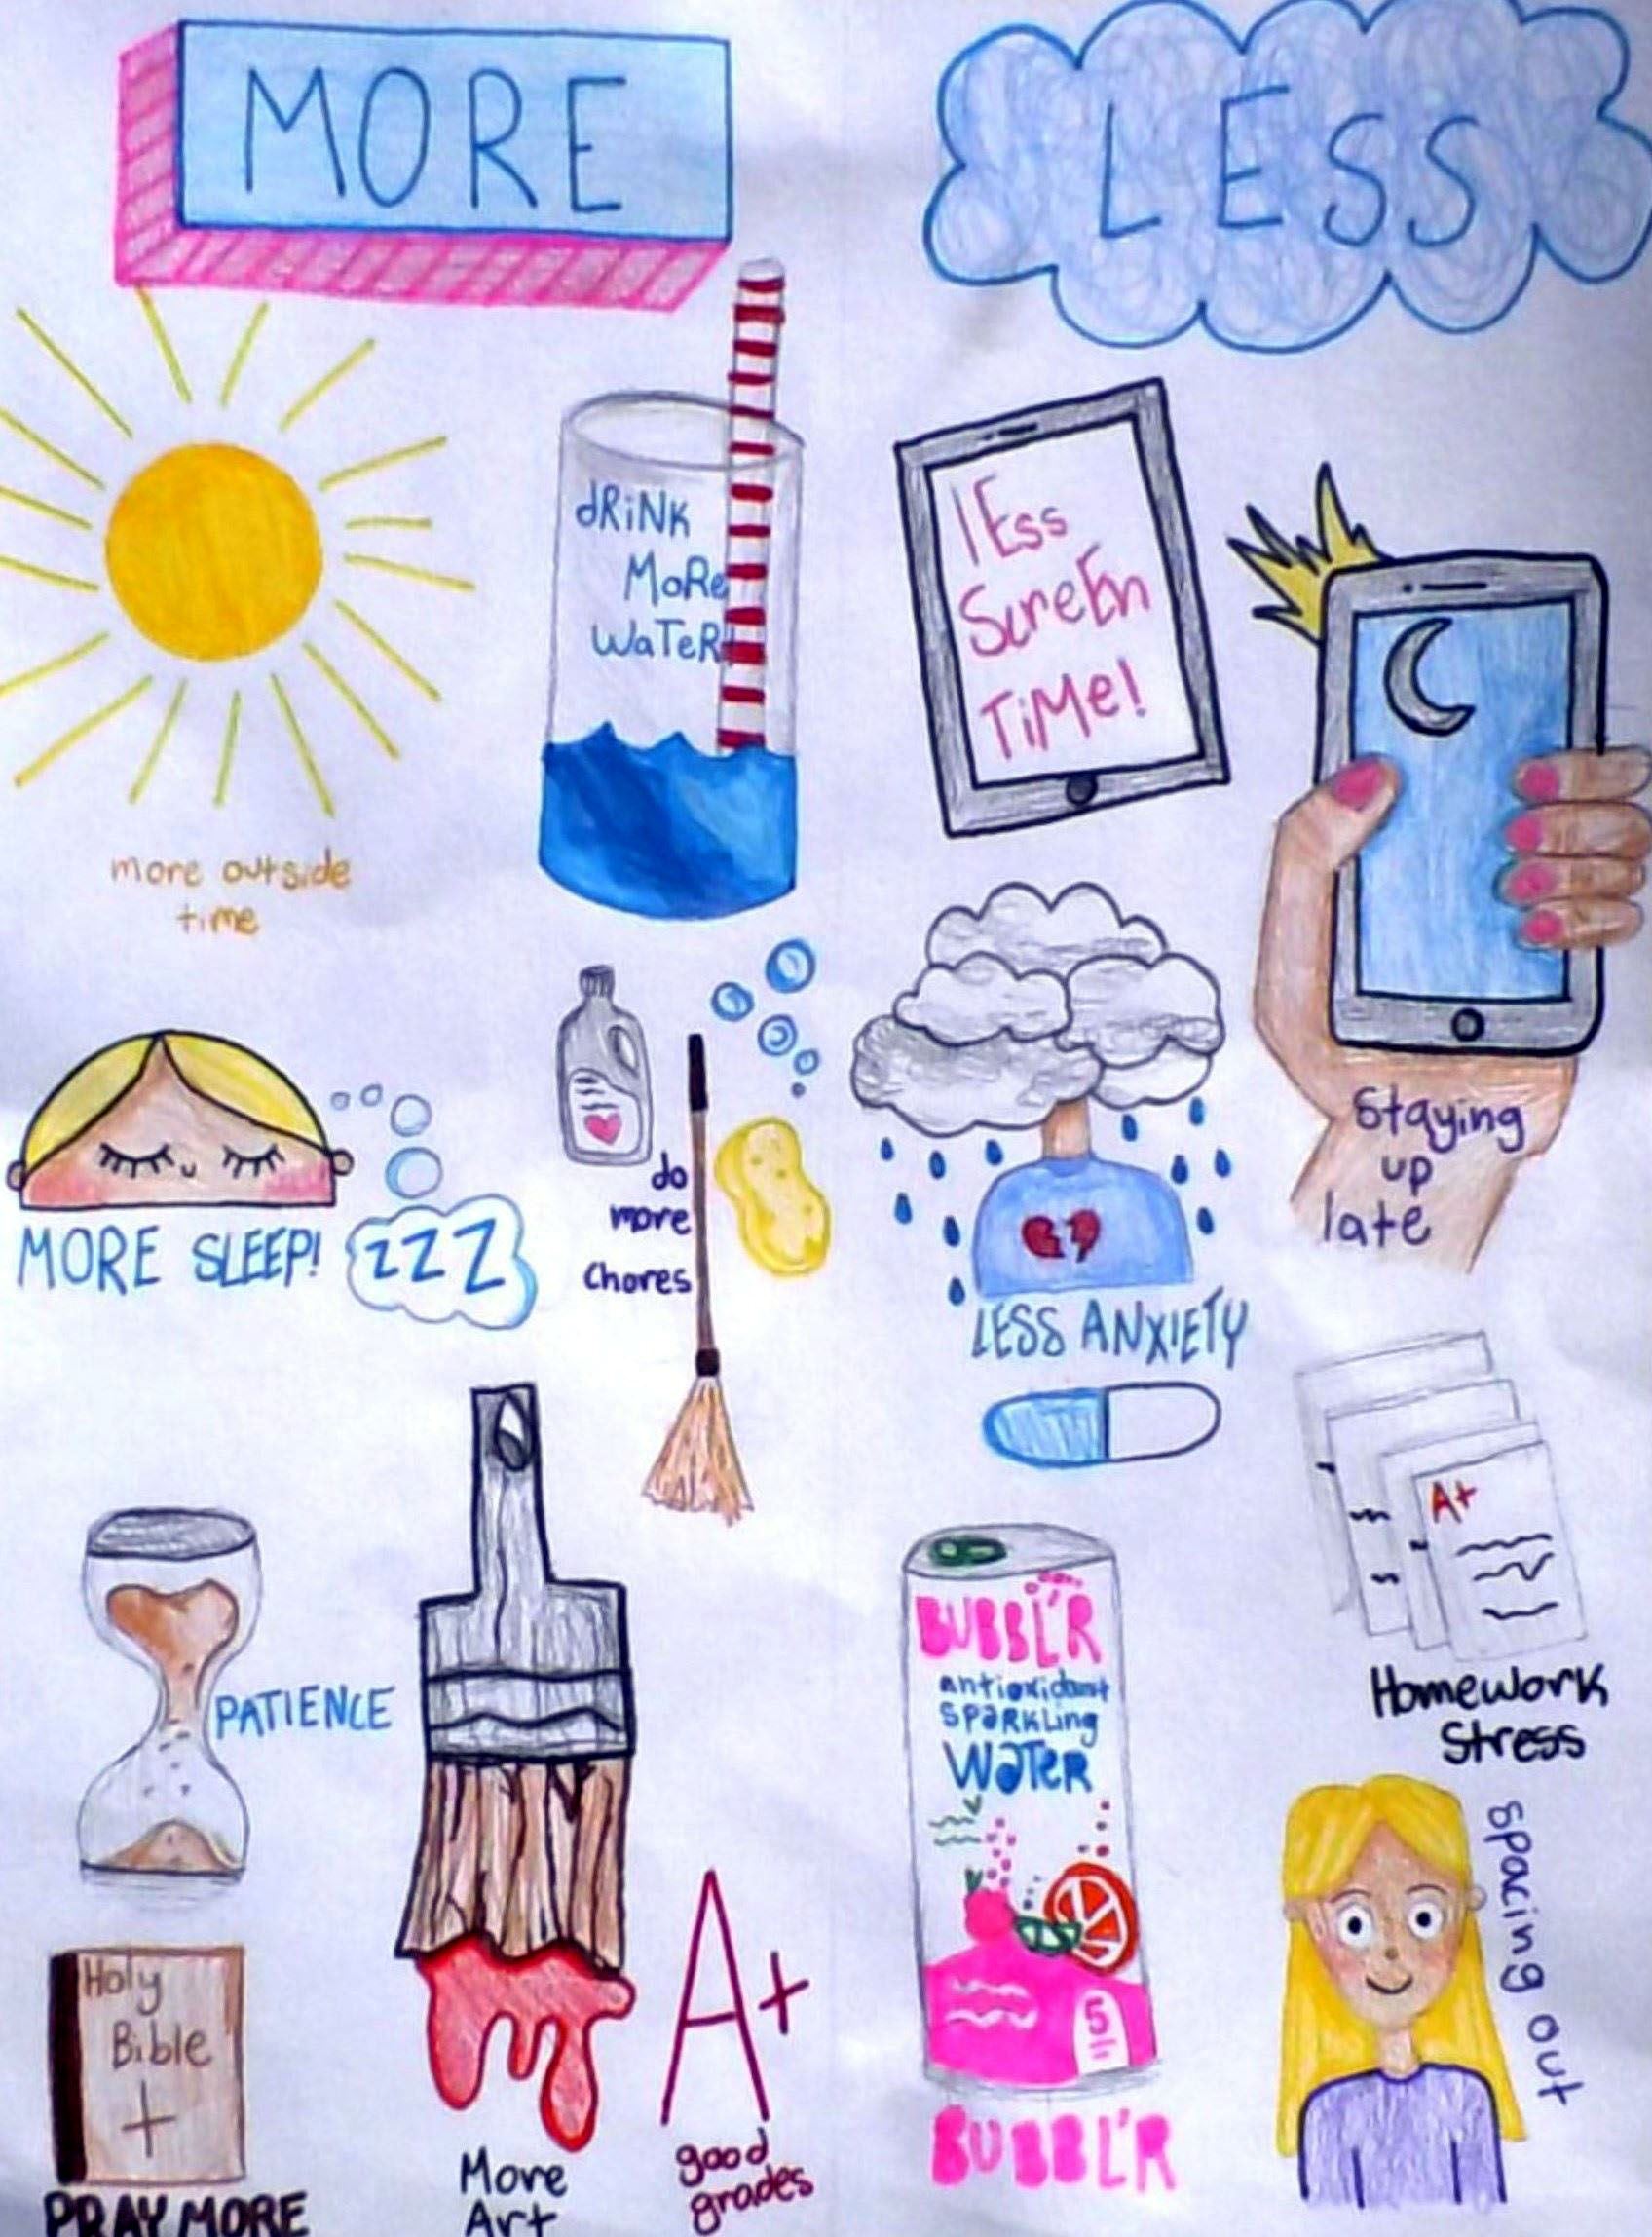 MORE
LESS
dRiNK
MoRe
WaTeR
lEss
ScreEn
TiMe!
more outside
time
Staying
up
late
MORE SLEEP!
zzZ
do
more
Chores
LESS ANXIETY
A+
Homework
Stress
PATIENCE
BUBBL'R
antioxidant
SPaRKLing
WaTeR
5
BUBBL'R
spacing out
Holy
Bible
PRAY MORE
More
Art
A+
good
grades